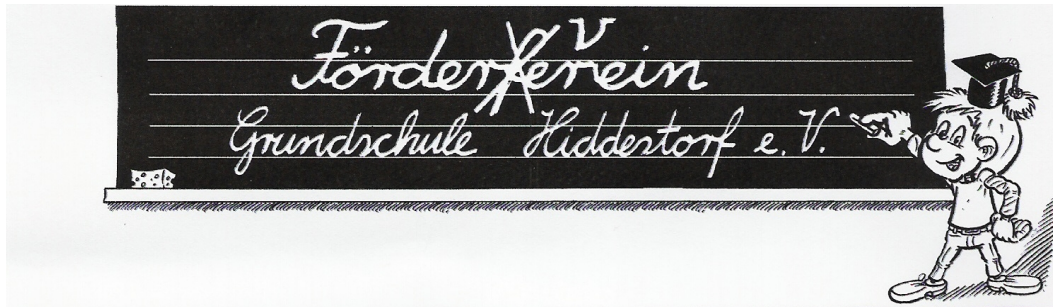 Förderverein
Grundschule Hiddestorf e. V.